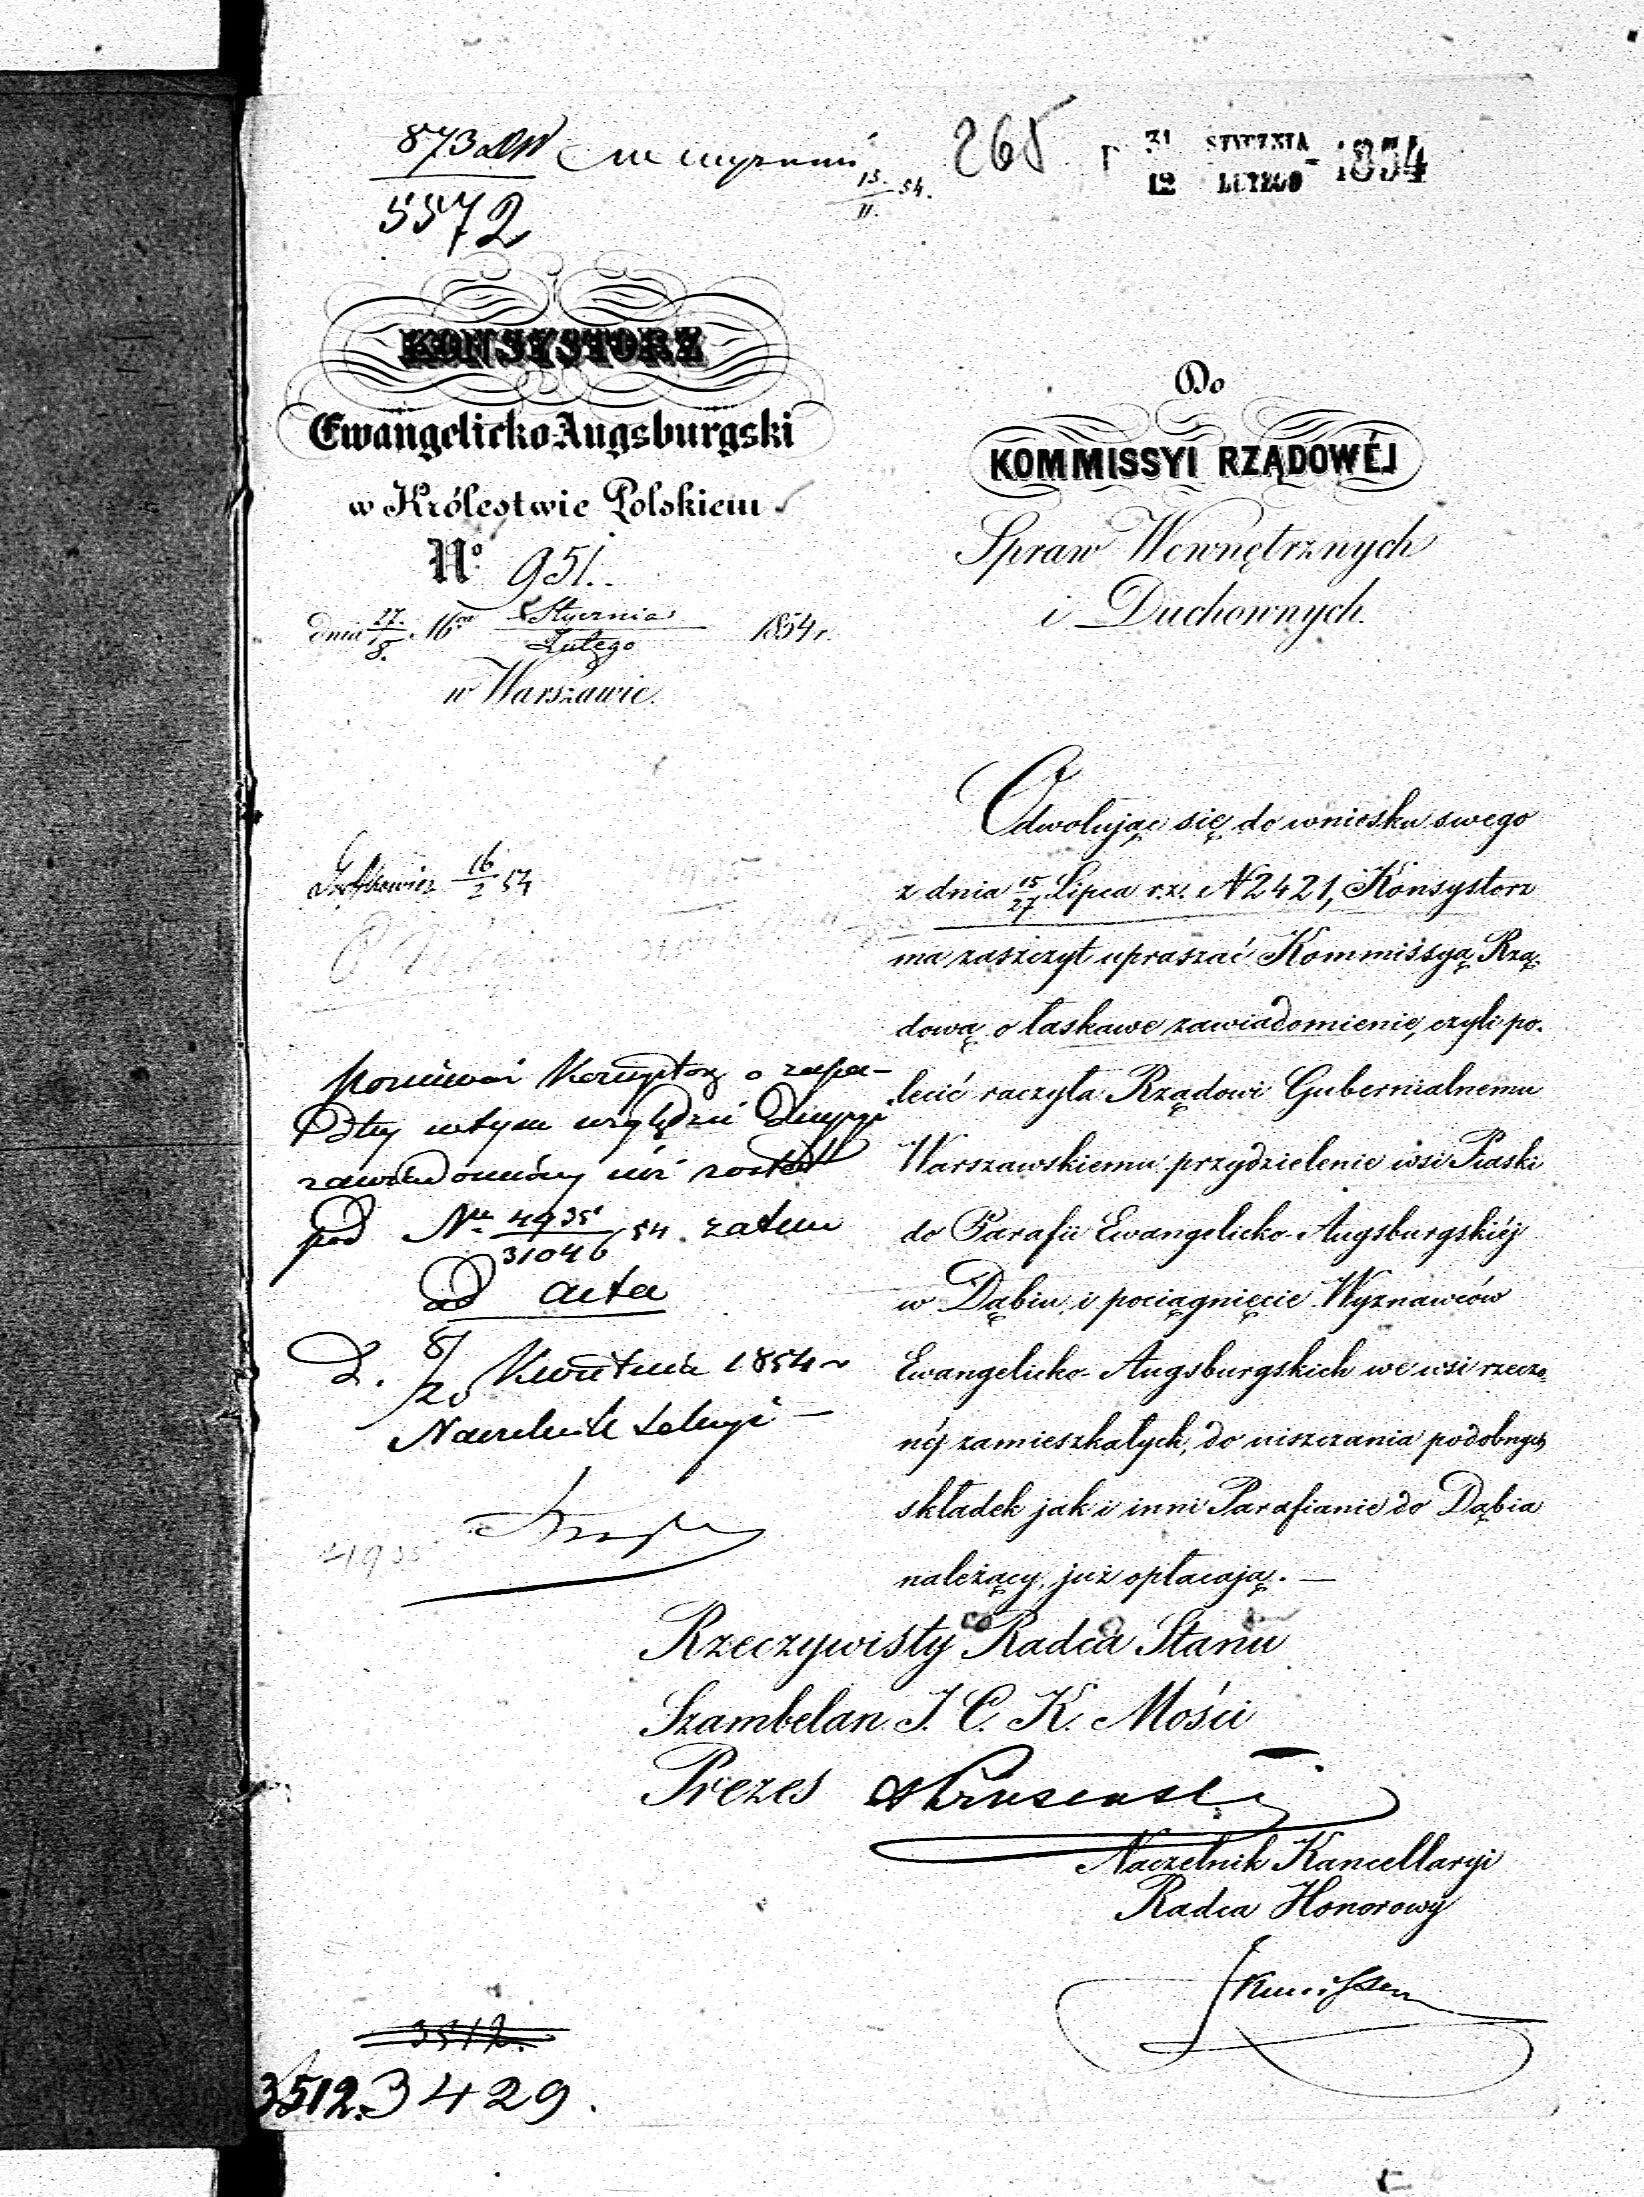 873
5572
15.
II. 54.
265
31 STYCZNIA
12 LUTEGO 1854
KONSYSTORZ
Ewangelicko-Augsburgski
w Królestwie Polskiem
No 951.
dnia 27./8. Stycznia/Lutego 1854 r.
w Warszawie.
Do
KOMMISSYI RZĄDOWÉJ
Spraw Wewnętrznych
i Duchownych.
16/2 54
Odwołując się do wniosku swego
z dnia 15/27 Lipca r.z. N 2421, Konsystorz
ma zaszczyt upraszać Kommissyą Rzą-
dową o łaskawe zawiadomienie, czyli po-
lecić raczyła Rządowi Gubernialnemu
Warszawskiemu przydzielenie wsi Piaski
do Parafii Ewangelicko-Augsburgskiéj
w Dąbiu i pociągnięcie Wyznawców
Ewangelicko-Augsburgskich we wsi rzeczo-
néj zamieszkałych, do uiszczania podobnych
składek jak i inni Parafianie do Dąbia
należący, już opłacają. —
Ponieważ Konsystorz o zapa-
dłej w tym względzie Decyzyi
zawiadomiony już został
pod Nr 4935/31046 54 zatem
ad acta
D. 8/20 Kwietnia 1854 r
Naczelnik Sekcyi —
4935
Rzeczywisty Radca Stanu
Szambelan J. C. K. Mości
Prezes
Naczelnik Kancellaryi
Radca Honorowy
3512.
3512. 3429.